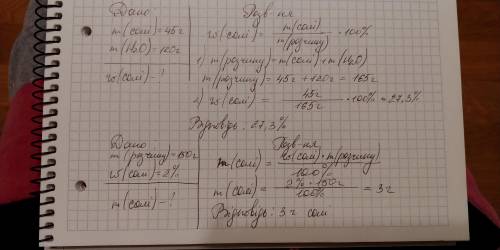 Дано
m(солі)=45г
m(H₂O)=120г
w(солі)-?
Розв-ня
w(солі)= m(солі)/m(розчину) ·100%
1) m(розчину)=m(солі)+m(H₂O)
m(розчину)=45г+120г = 165г
2) w(солі) = 45г/165г ·100% = 27,3%
Відповідь: 27,3%
Дано
m(розчину)=150г
w(солі)=2%
m(солі)-?
Розв-ня
m(солі)= w(солі)·m(розчину)/100%
m(солі)= 2%·150г/100% = 3г
Відповідь: 3г солі